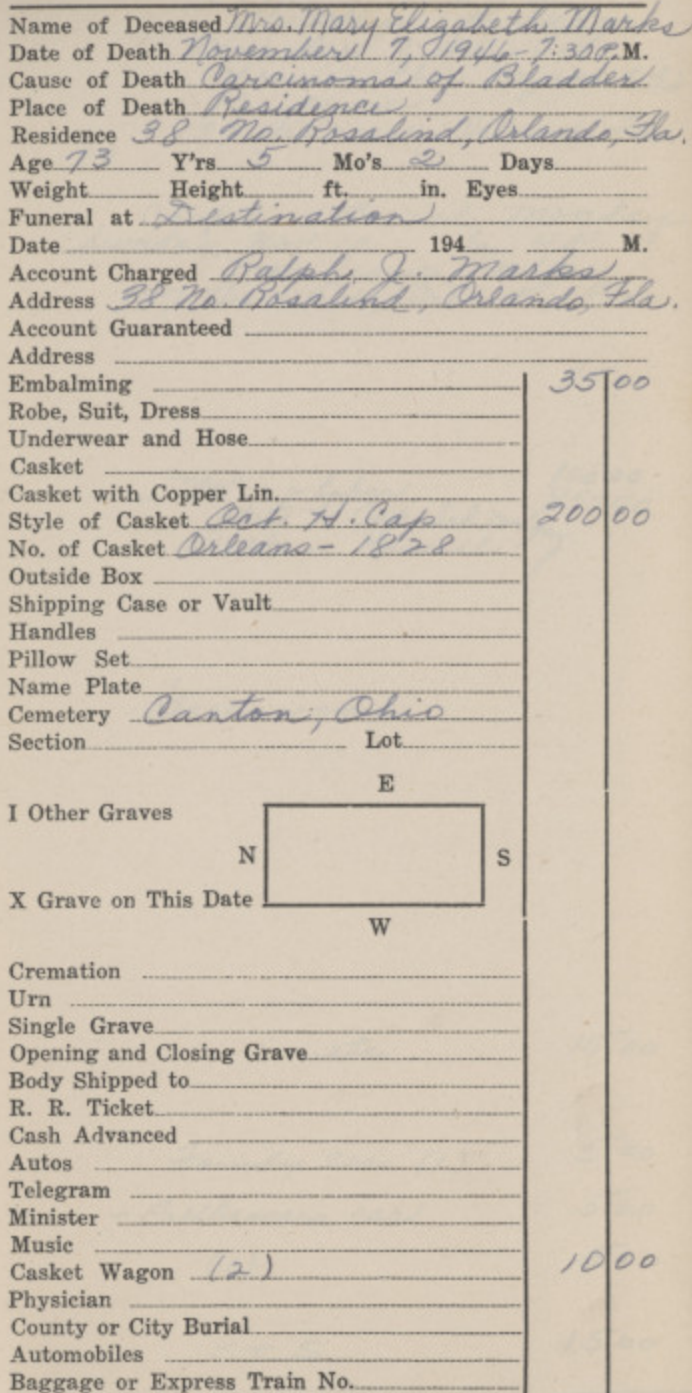 Name of Deceased Mrs. Mary Elizabeth Marks
Date of Death November 7, 1946 - 7:30 P.M.
Cause of Death Carcinoma of Bladder
Place of Death Residence
Residence 38 No. Rosalind, Orlando, Fla.
Age 73 Y'rs 5 Mo's 2 Days
Weight Height ft. in. Eyes
Funeral at Destination
Date 194 M.
Account Charged Ralph J. Marks
Address 38 No. Rosalind, Orlando, Fla.
Account Guaranteed
Address
Embalming 35 00
Robe, Suit, Dress
Underwear and Hose
Casket
Casket with Copper Lin.
Style of Casket Oct. H. Cap 200 00
No. of Casket Orleans - 1828
Outside Box
Shipping Case or Vault
Handles
Pillow Set
Name Plate
Cemetery Canton, Ohio
Section Lot
E
I Other Graves
N S
X Grave on This Date
W
Cremation
Urn
Single Grave
Opening and Closing Grave
Body Shipped to
R. R. Ticket
Cash Advanced
Autos
Telegram
Minister
Music
Casket Wagon (2) 10 00
Physician
County or City Burial
Automobiles
Baggage or Express Train No.